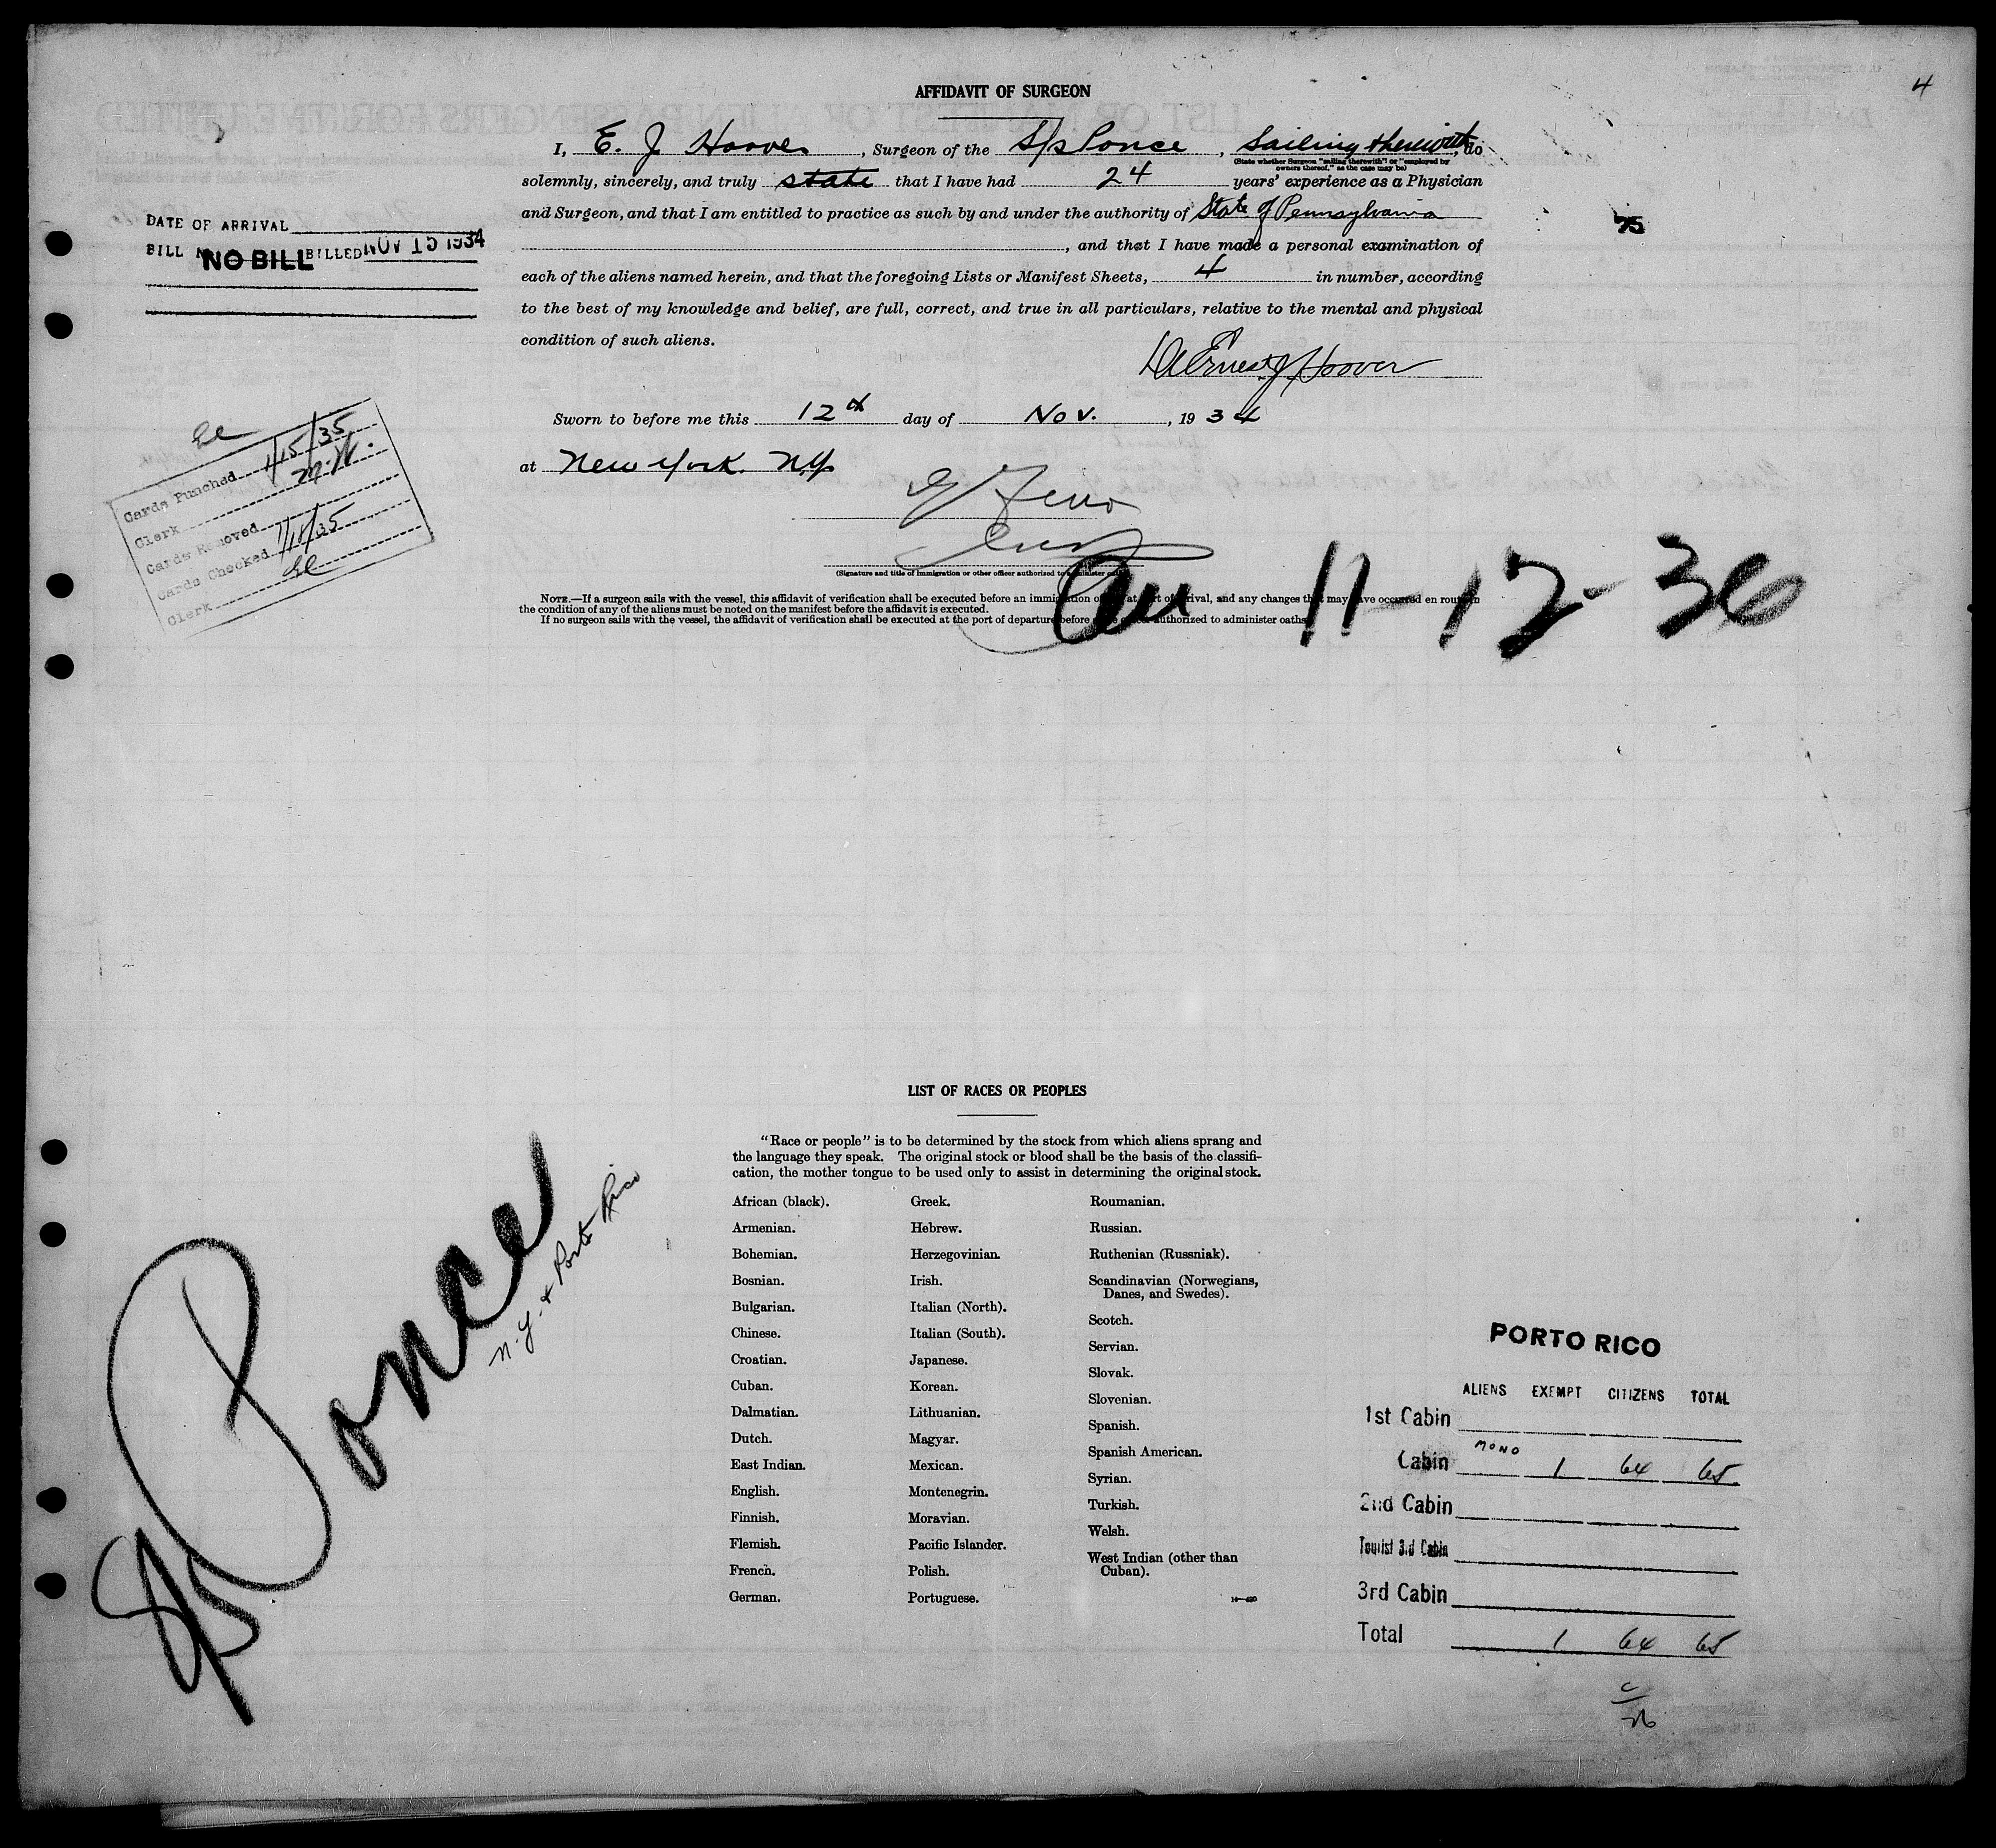 4
AFFIDAVIT OF SURGEON
I, E. J. Hoover, Surgeon of the S/s Ponce, Sailing therewith, do
(State whether Surgeon "sailing therewith" or "employed by
owners thereof," as the case may be)
solemnly, sincerely, and truly state that I have had 24 years' experience as a Physician
and Surgeon, and that I am entitled to practice as such by and under the authority of State of Pennsylvania
, and that I have made a personal examination of
each of the aliens named herein, and that the foregoing Lists or Manifest Sheets, 4 in number, according
to the best of my knowledge and belief, are full, correct, and true in all particulars, relative to the mental and physical
condition of such aliens.
Ernest J Hoover
Sworn to before me this 12th day of Nov., 1934
at New York. N.Y.
(Signature and title of immigration or other officer authorized to administer oaths)
NOTE.—If a surgeon sails with the vessel, this affidavit of verification shall be executed before an immigration officer at port of arrival, and any changes that may have occurred en route in
the condition of any of the aliens must be noted on the manifest before the affidavit is executed.
If no surgeon sails with the vessel, the affidavit of verification shall be executed at the port of departure before some officer authorized to administer oaths.
11-12-36
75
DATE OF ARRIVAL
BILL NO BILL BILLED NOV 15 1934
Cards Punched 1/15/35
Clerk M.W.
Cards Removed
Cards Checked 1/18/35
Clerk
LIST OF RACES OR PEOPLES
"Race or people" is to be determined by the stock from which aliens sprang and
the language they speak. The original stock or blood shall be the basis of the classifi-
cation, the mother tongue to be used only to assist in determining the original stock.
African (black).
Armenian.
Bohemian.
Bosnian.
Bulgarian.
Chinese.
Croatian.
Cuban.
Dalmatian.
Dutch.
East Indian.
English.
Finnish.
Flemish.
French.
German.
Greek.
Hebrew.
Herzegovinian.
Irish.
Italian (North).
Italian (South).
Japanese.
Korean.
Lithuanian.
Magyar.
Mexican.
Montenegrin.
Moravian.
Pacific Islander.
Polish.
Portuguese.
Roumanian.
Russian.
Ruthenian (Russniak).
Scandinavian (Norwegians,
Danes, and Swedes).
Scotch.
Servian.
Slovak.
Slovenian.
Spanish.
Spanish American.
Syrian.
Turkish.
Welsh.
West Indian (other than
Cuban).
S/S Ponce
N.Y. & Porto Rico
PORTO RICO
ALIENS EXEMPT CITIZENS TOTAL
1st Cabin
Cabin MONO 1 64 65
2nd Cabin
Tourist 3rd Cabin
3rd Cabin
Total 1 64 65